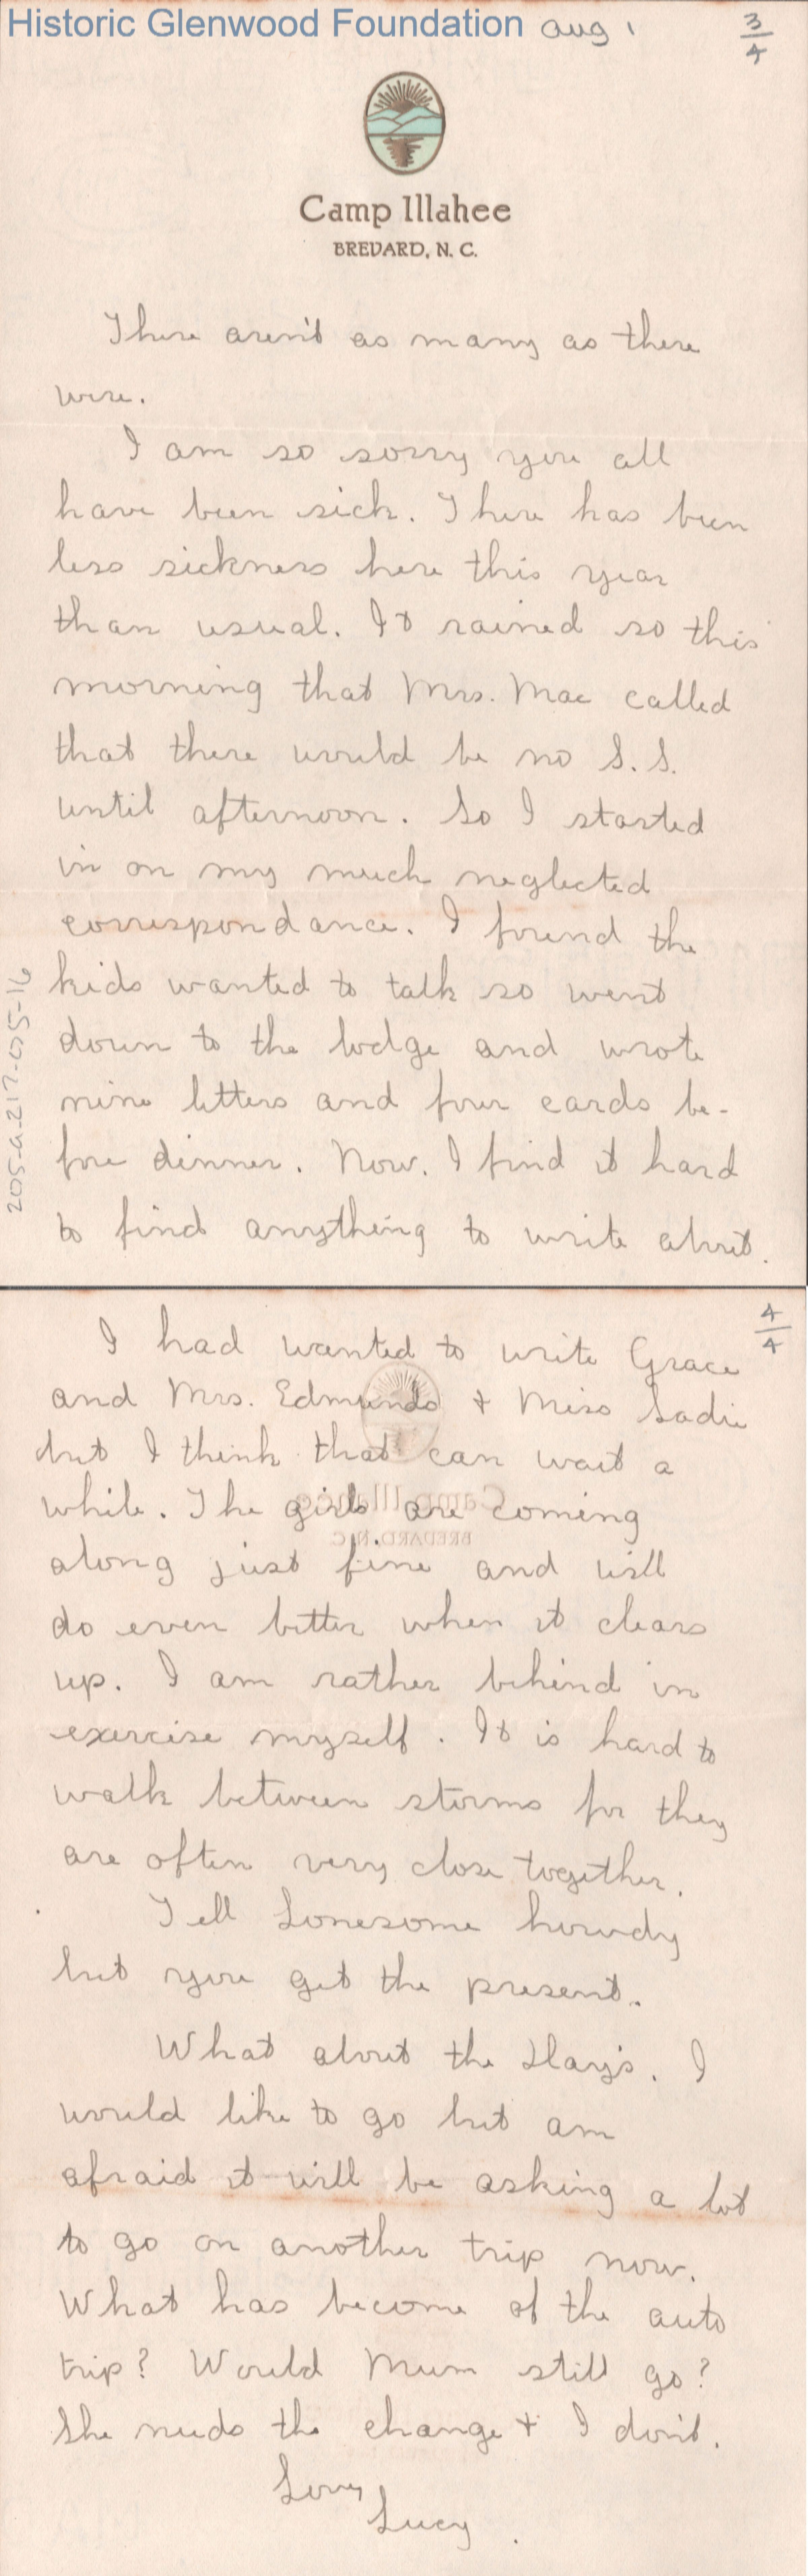 Historic Glenwood Foundation aug 1
3/4
Camp Illahee
BREVARD, N. C.
There aren't as many as there
were.
I am so sorry you all
have been sick. There has been
less sickness here this year
than usual. It rained so this
morning that Mrs. Mac called
that there would be no S. S.
until afternoon. So I started
in on my much neglected
correspondance. I found the
kids wanted to talk so went
down to the lodge and wrote
nine letters and four cards be-
fore dinner. Now. I find it hard
to find anything to write about.
205-a-217-075-16
4/4
I had wanted to write Grace
and Mrs. Edmunds + Miss Sadie
but I think that can wait a
while. The girls are coming
along just fine and will
do even better when it clears
up. I am rather behind in
exercise myself. It is hard to
walk between storms for they
are often very close together.
Tell Lonesome howdy
but you get the present.
What about the Hay's. I
would like to go but am
afraid it will be asking a lot
to go on another trip now.
What has become of the auto
trip? Would Mum still go?
She needs the change + I don't.
Love,
Lucy.